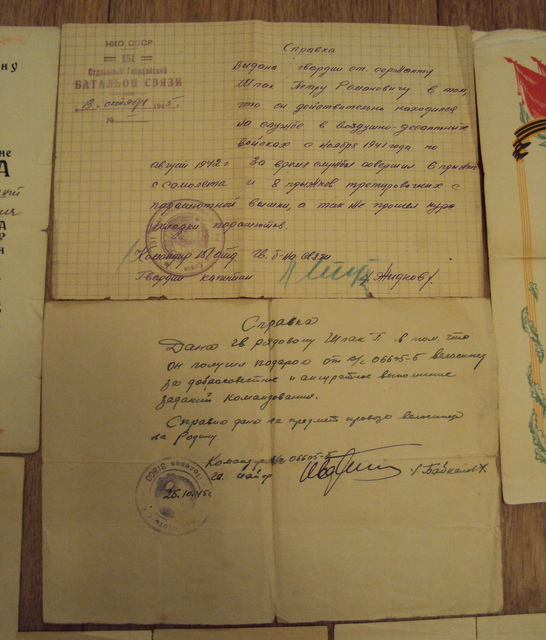 НКО СССР
151
Отдельный Гвардейский
БАТАЛЬОН СВЯЗИ
октября 1945
№
Справка
Выдана гвардии ст. сержанту
Шпак Петру Романовичу в том,
что он действительно находился
на службе в воздушно-десантных
войсках с ноября 1941 года по
август 1942 г. За время службы совершил 6 прыжк
с самолета и 8 прыжков тренировочных с
парашютной вышки, а так же прошел курс
укладки парашютов.
Командир 151 гв. б-на связи
Гвардии капитан
/Жидков/
Справка
Дана гв рядовому Шпак П в том, что
он получил подарок от в/ч 06605-Б велосипед
за добросовестное и аккуратное выполнение
заданий командования.
Справка дана на предмет провоза велосипеда
на Родину
Командир в/ч 06605-Б
гв. майор
/Байкалов/
25.10.45 г.
ну
не
А